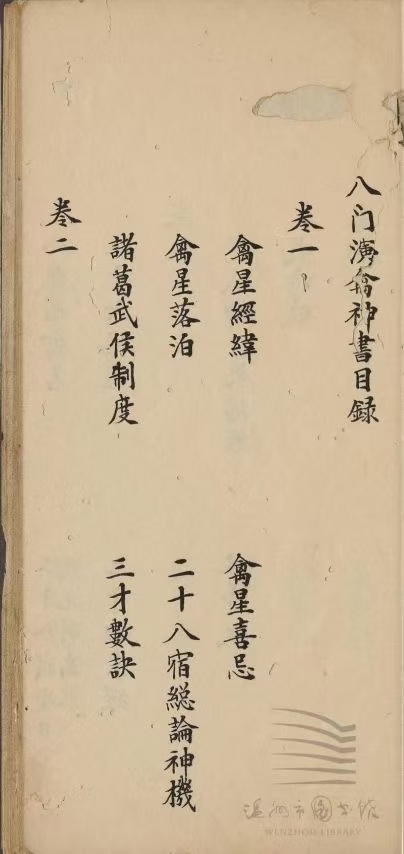 八门演禽神書目録
卷一
禽星經緯
禽星喜忌
禽星落泊
二十八宿総論神機
諸葛武侯制度
三才數訣
卷二
温州市圖书馆
WENZHOU LIBRARY